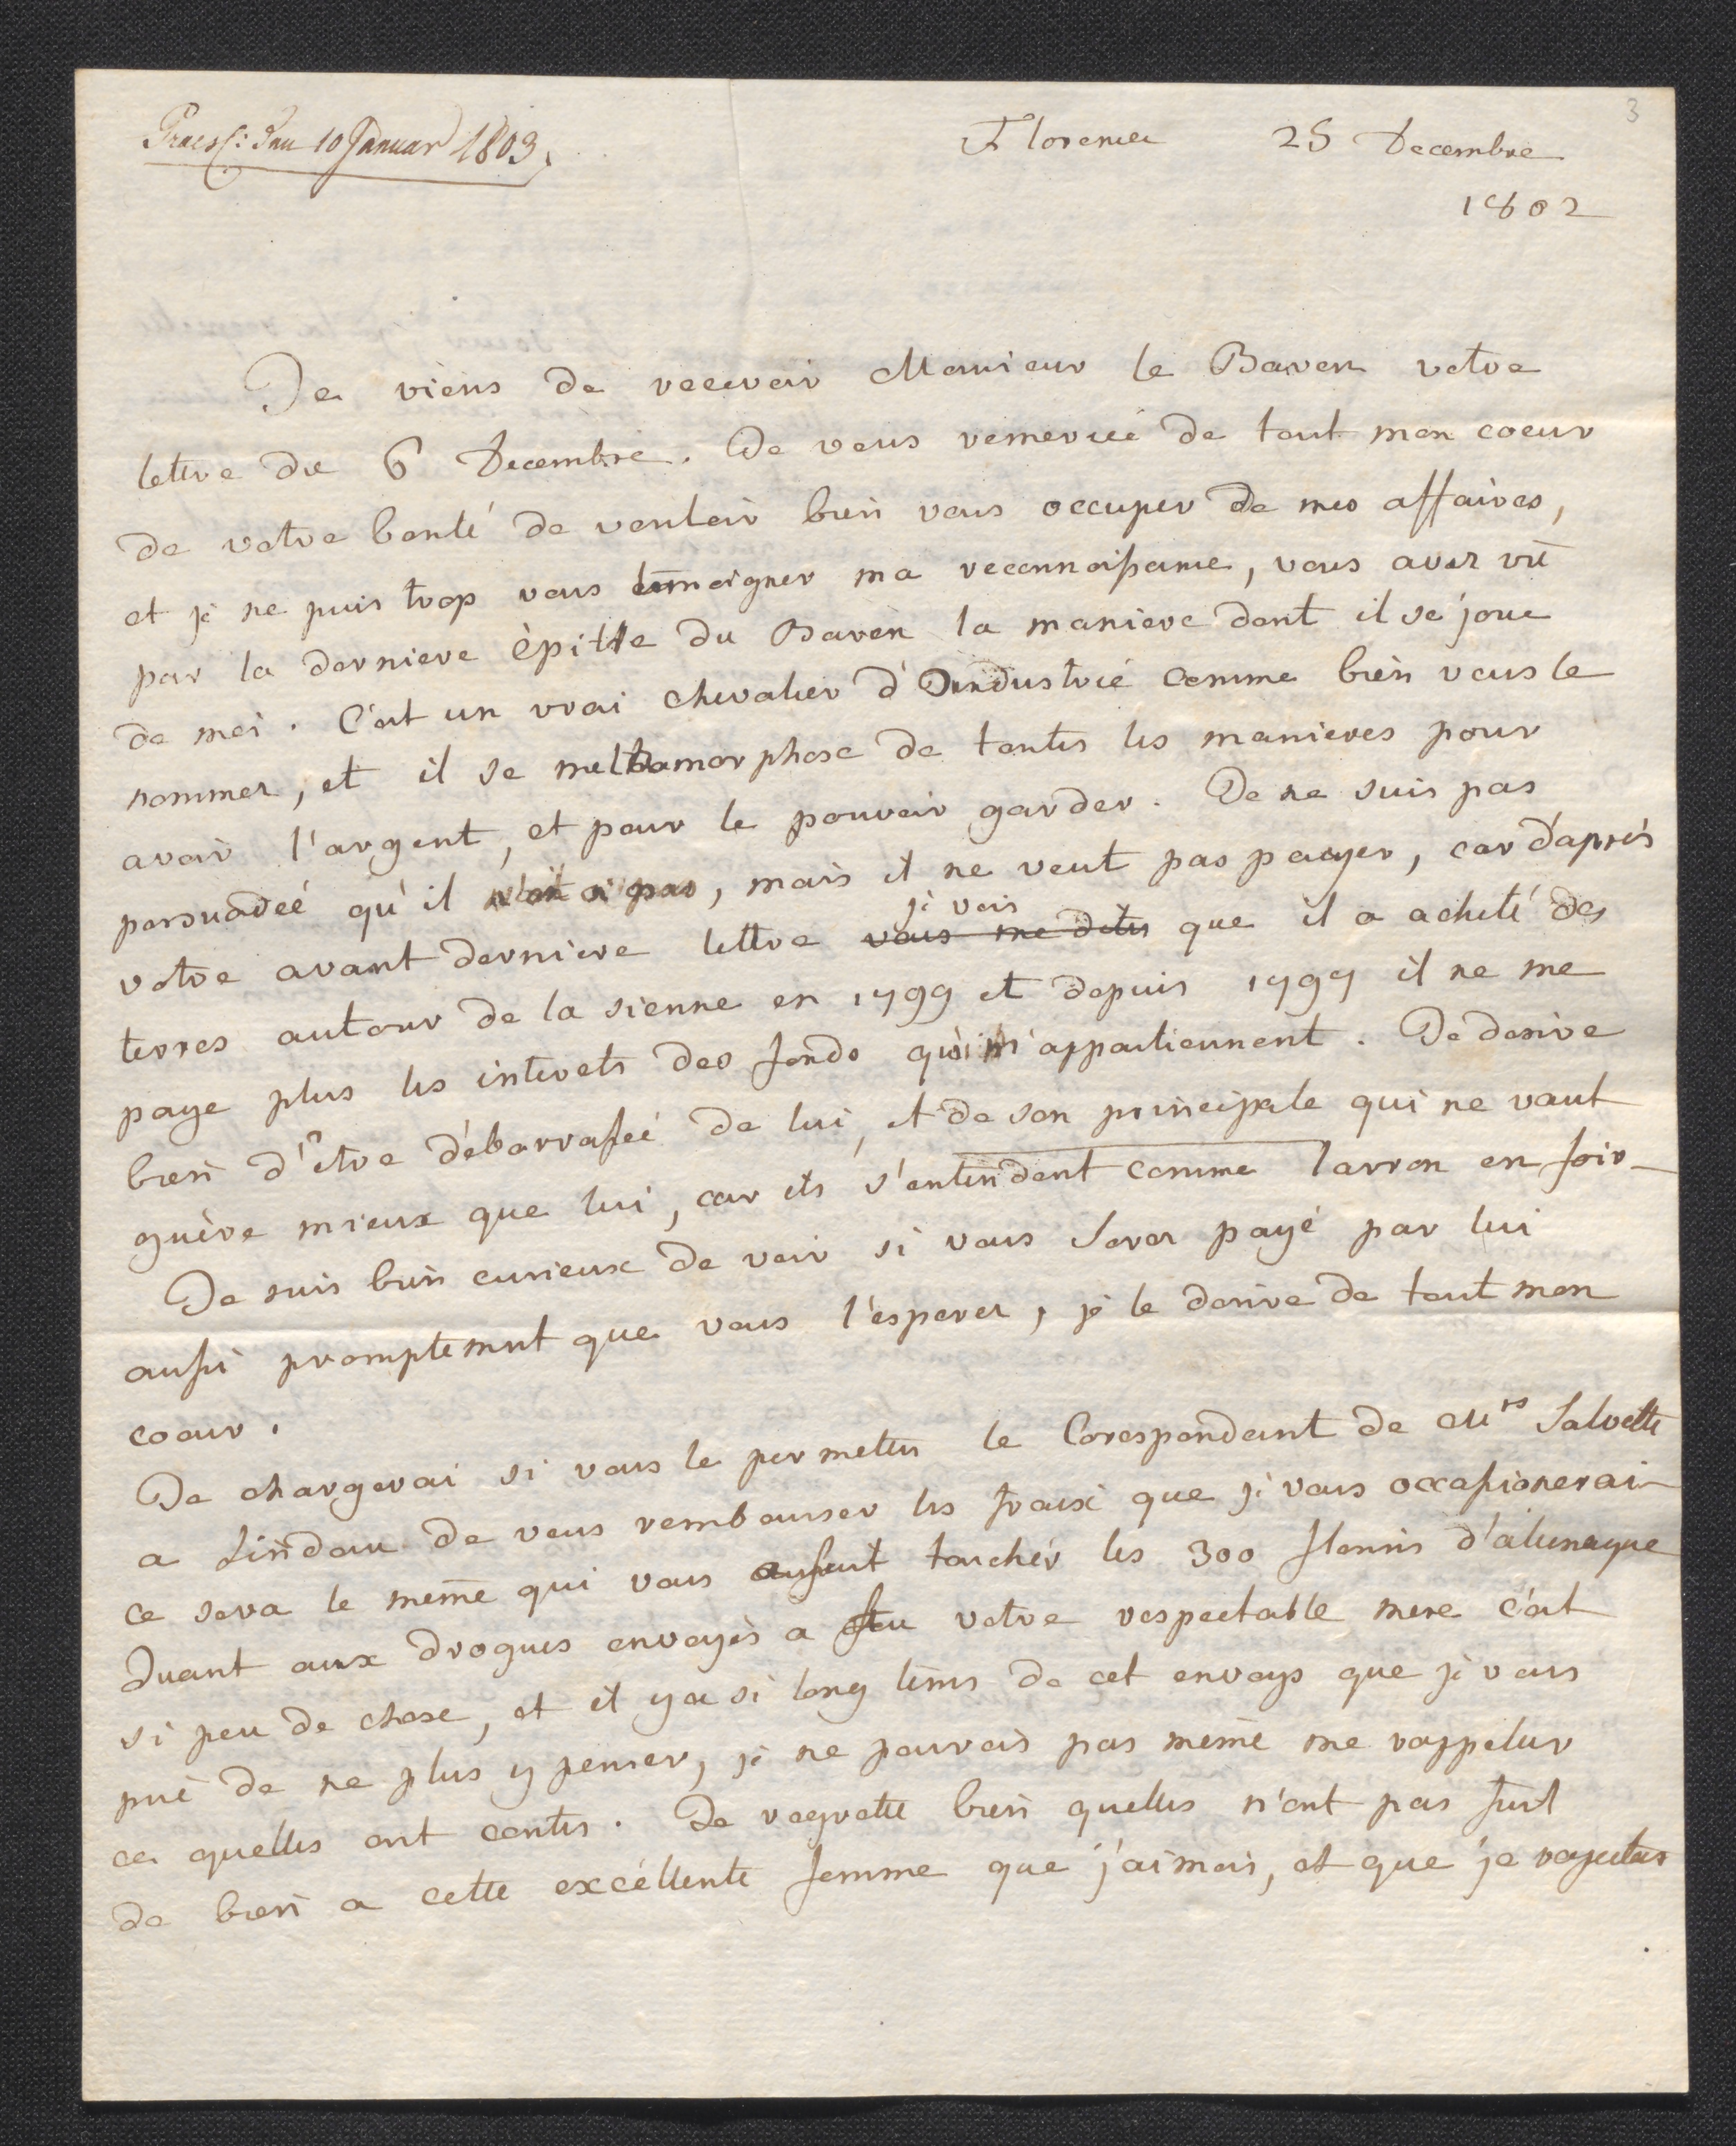 3
Praes: den 10 Januar 1803.
Florence 25 Decembre
1802
Je viens de recevoir Monsieur le Baron votre
lettre du 6 Decembre. Je vous remerciè de tout mon coeur
de votre bonté de vouloir bien vous occuper de mes affaires,
et je ne puis trop vous temoigner ma reconnoissance, vous avez vù
par la derniere èpitre du Baron la maniere dont il se joue
de moi. C'est un vrai chevalier d'Industrié comme bien vous le
nommez, et il se methamorphose de toutes les manieres pour
avoir l'argent, et pour le pouvoir garder. Je ne suis pas
persuadéé qu'il n'en a pas, mais il ne veut pas payer, car d'après
votre avant derniere lettre vous me dites je vois que il a acheté des
terres autour de la sienne en 1799 et depuis 1797 il ne me
paye plus les interets des fonds qui m'appartiennent. Je desire
bien d'être débarrasséé de lui, et de son principale qui ne vaut
guère mieux que lui, car ils s'entendent comme larron en foir
Je suis bien curieuse de voir si vous serez payé par lui
aussi promptement que vous l'esperez, je le desire de tout mon
coeur.
Je chargerai si vous le permettes le Corespondant de Mrs Salvetti
a Lindau de vous rembourser les fraix que je vous occasionerai
ce sera le même qui vous toucher les 300 florins d'alemagne
Quant aux drogues envoyès a feu votre respectable mere c'est
si peu de chose, et il y a si long tems de cet envoys que je vous
prie de ne plus y penser, je ne pourais pas même me rappeller
ce quelles ont coutes. Je regrette bien quelles n'ont pas fait
de bien a cette excéllente femme que j'aimois, et que je